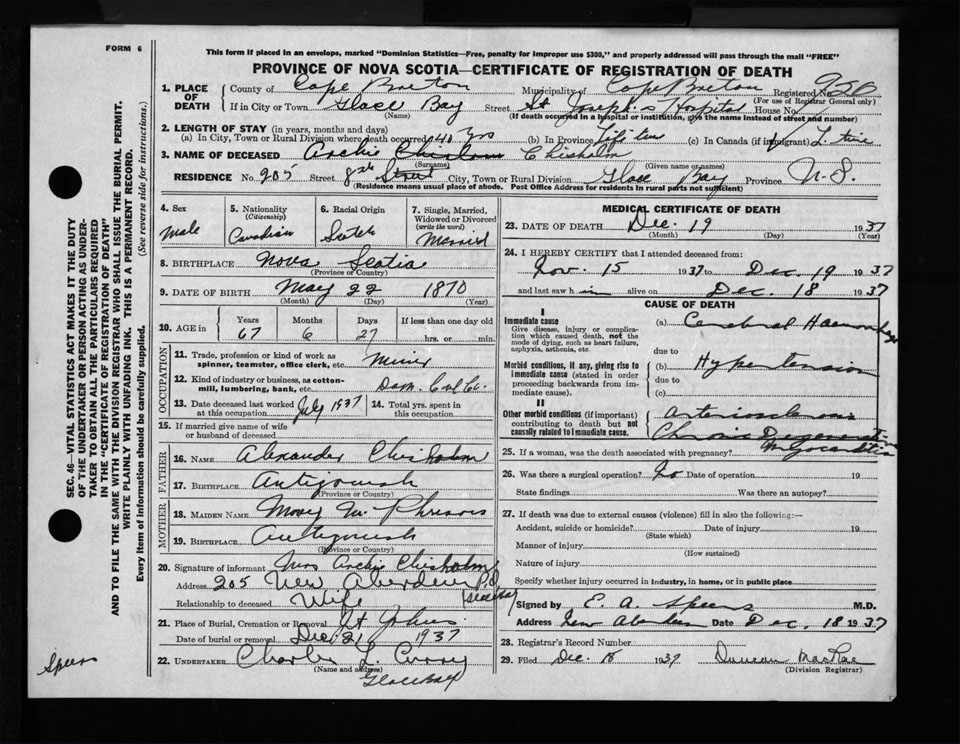 FORM 6
This form if placed in an envelope, marked "Dominion Statistics—Free, penalty for improper use $300," and properly addressed will pass through the mail "FREE"
PROVINCE OF NOVA SCOTIA—CERTIFICATE OF REGISTRATION OF DEATH
1. PLACE OF DEATH
County of Cape Breton Municipality of Cape Breton Registered No.
(For use of Registrar General only)
If in City or Town Glace Bay Street St Joseph's Hospital House No.
(Name) (If death occurred in a hospital or institution, give the name instead of street and number)
2. LENGTH OF STAY (in years, months and days)
(a) In City, Town or Rural Division where death occurred 40 yrs (b) In Province (c) In Canada (if immigrant)
3. NAME OF DECEASED Archie Chisholm
(Surname) (Given name or names)
RESIDENCE No. 205 Street 8th Street City, Town or Rural Division Glace Bay Province N.S.
(Residence means usual place of abode. Post Office Address for residents in rural parts not sufficient)
4. Sex
Male
5. Nationality
(Citizenship)
Canadian
6. Racial Origin
7. Single, Married, Widowed or Divorced
(write the word)
Married
8. BIRTHPLACE Nova Scotia
(Province or Country)
9. DATE OF BIRTH May 22 1870
(Month) (Day) (Year)
10. AGE in Years Months Days If less than one day old
67 6 27 hrs. or min.
OCCUPATION
11. Trade, profession or kind of work as spinner, teamster, office clerk, etc. Miner
12. Kind of industry or business, as cotton-mill, lumbering, bank, etc. Dom. Coal Co.
13. Date deceased last worked at this occupation July 1937
14. Total yrs. spent in this occupation
15. If married give name of wife or husband of deceased
FATHER
16. NAME Alexander Chisholm
17. BIRTHPLACE Antigonish
(Province or Country)
MOTHER
18. MAIDEN NAME
19. BIRTHPLACE Antigonish
(Province or Country)
20. Signature of informant Mrs Archie Chisholm
Address 205 New Aberdeen P.O
Relationship to deceased Wife
21. Place of Burial, Cremation or Removal
Date of burial or removal Dec 21 1937
22. UNDERTAKER Charlie L. Curry
(Name and address)
Glace Bay
MEDICAL CERTIFICATE OF DEATH
23. DATE OF DEATH Dec. 19 1937
(Month) (Day) (Year)
24. I HEREBY CERTIFY that I attended deceased from:
Nov. 15 1937 to Dec. 19 1937
and last saw h im alive on Dec. 18 1937
CAUSE OF DEATH
I
Immediate cause
Give disease, injury or complication which caused death, not the mode of dying, such as heart failure, asphyxia, asthenia, etc.
(a) Cerebral Haemorrhage
due to
Morbid conditions, if any, giving rise to immediate cause (stated in order proceeding backwards from immediate cause).
(b) Hypertension
due to
(c)
II
Other morbid conditions (if important) contributing to death but not causally related to immediate cause.
Arteriosclerosis
Chronic Degenerative
Myocarditis
25. If a woman, was the death associated with pregnancy?
26. Was there a surgical operation? No Date of operation 19
State findings Was there an autopsy?
27. If death was due to external causes (violence) fill in also the following:—
Accident, suicide or homicide? Date of injury 19
(State which)
Manner of injury
(How sustained)
Nature of injury
Specify whether injury occurred in industry, in home, or in public place
Signed by E. A. M.D.
Address New Aberdeen Date Dec. 18 1937
28. Registrar's Record Number
29. Filed Dec. 18 1937 Duncan MacRae
(Division Registrar)
SEC. 46—VITAL STATISTICS ACT MAKES IT THE DUTY
OF THE UNDERTAKER OR PERSON ACTING AS UNDERTAKER TO OBTAIN ALL THE PARTICULARS REQUIRED
IN THE "CERTIFICATE OF REGISTRATION OF DEATH"
AND TO FILE THE SAME WITH THE DIVISION REGISTRAR WHO SHALL ISSUE THE BURIAL PERMIT.
WRITE PLAINLY WITH UNFADING INK. THIS IS A PERMANENT RECORD.
Every item of information should be carefully supplied. (See reverse side for instructions.)